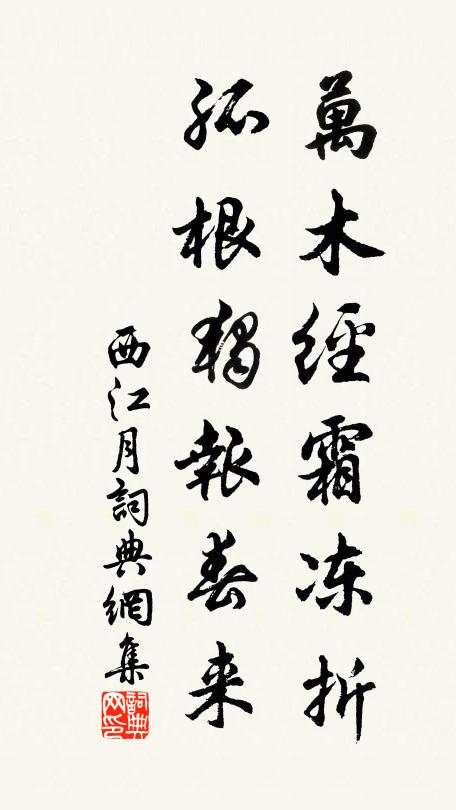 萬木經霜冻折
孤根獨報春来
西江月詞典網集
詞典网印